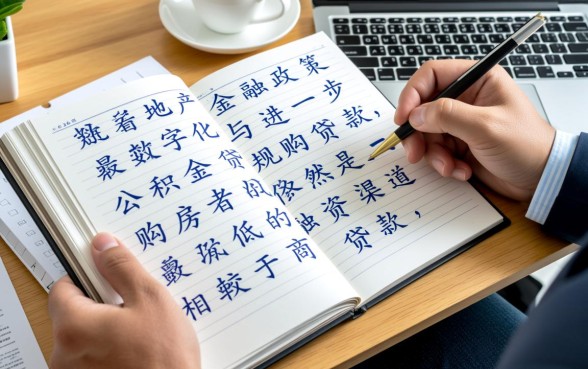 着地产
最数字化
公积金贷
购房者的
低的
相较于商
金融政策
与进一步
规购贷款，
然是
资渠道
贷款，